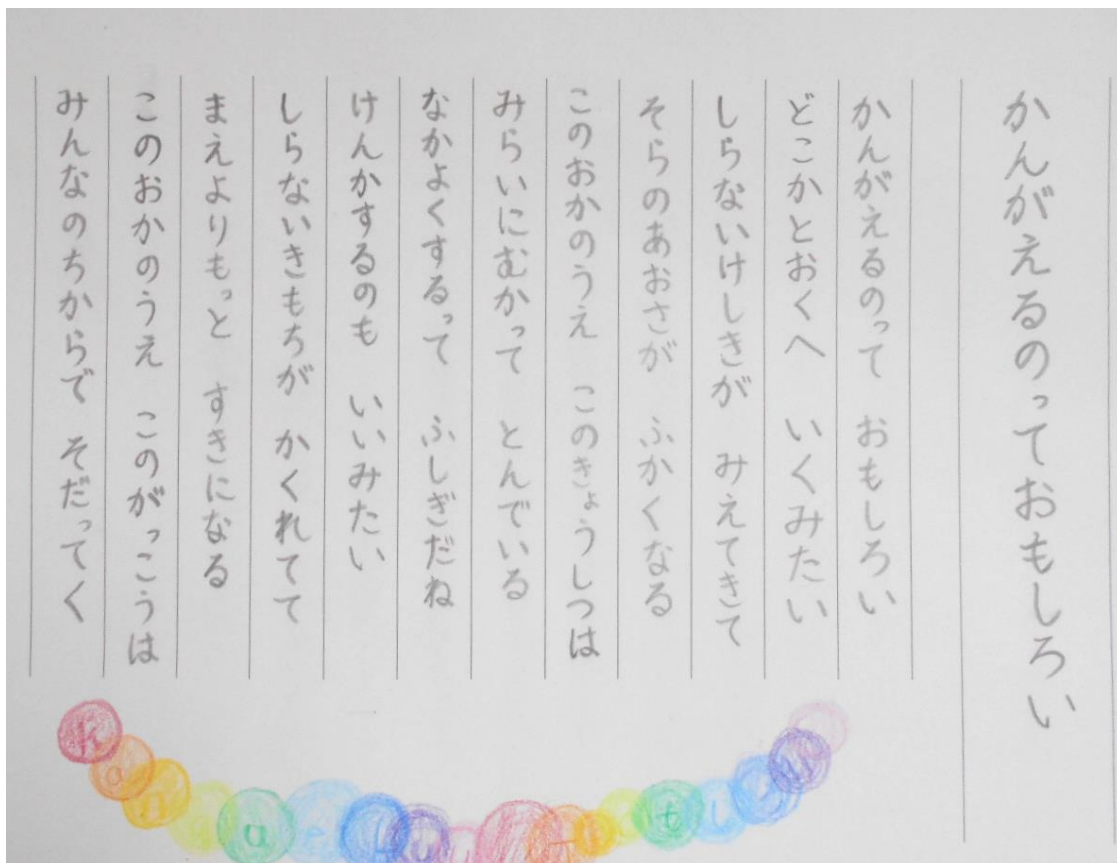 かんがえるのっておもしろい
かんがえるのって おもしろい
どこかとおくへ いくみたい
しらないけしきが みえてきて
そらのあおさが ふかくなる
このおかのうえ このきょうしつは
みらいにむかって とんでいる
なかよくするって ふしぎだね
けんかするのも いいみたい
しらないきもちが かくれてて
まえよりもっと すきになる
このおかのうえ このがっこうは
みんなのちからで そだってく